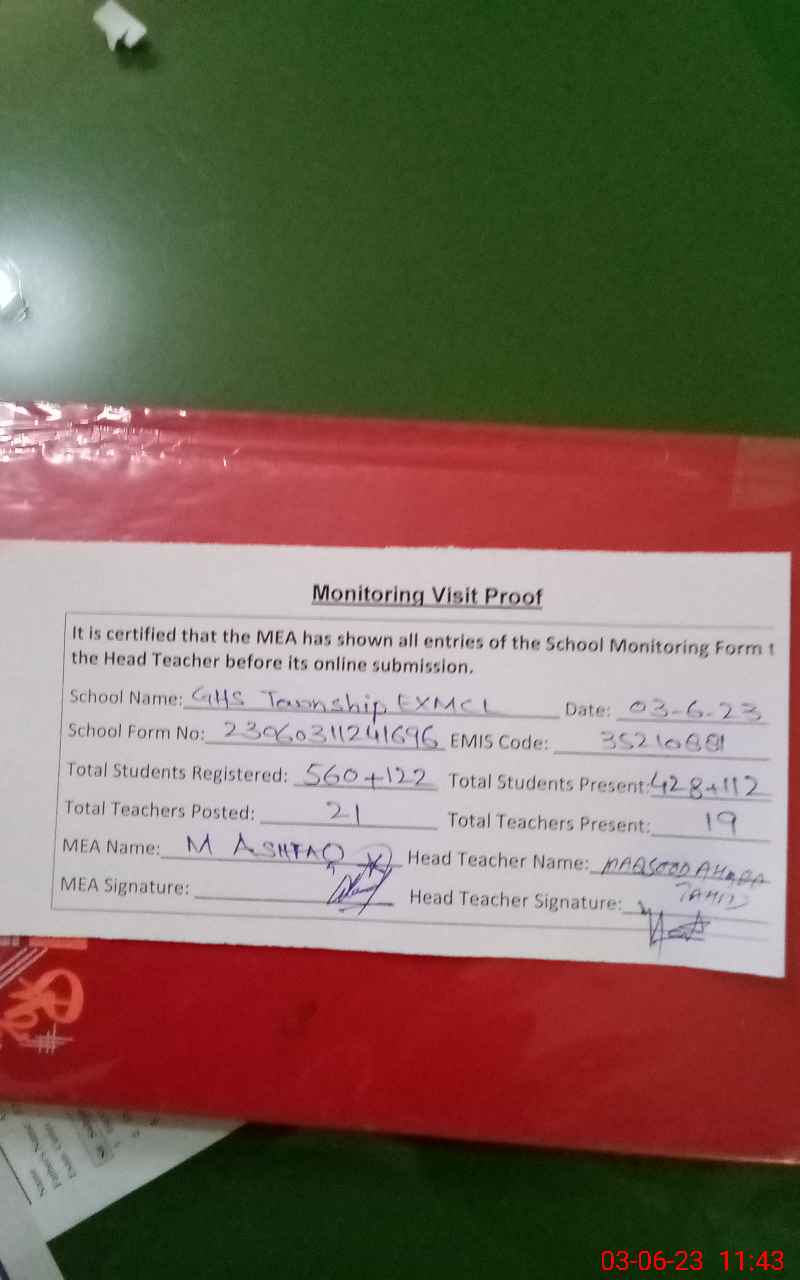 Monitoring Visit Proof
It is certified that the MEA has shown all entries of the School Monitoring Form t
the Head Teacher before its online submission.
School Name: GHS Township EXMCL Date: 03-6-23
School Form No: 23060311241696 EMIS Code: 35210881
Total Students Registered: 560+122 Total Students Present: 428+112
Total Teachers Posted: 21 Total Teachers Present: 19
MEA Name: M ASHFAQ Head Teacher Name: MAQSOOD AHMAD
MEA Signature: Head Teacher Signature:
Name
Father's Name
03-06-23 11:43